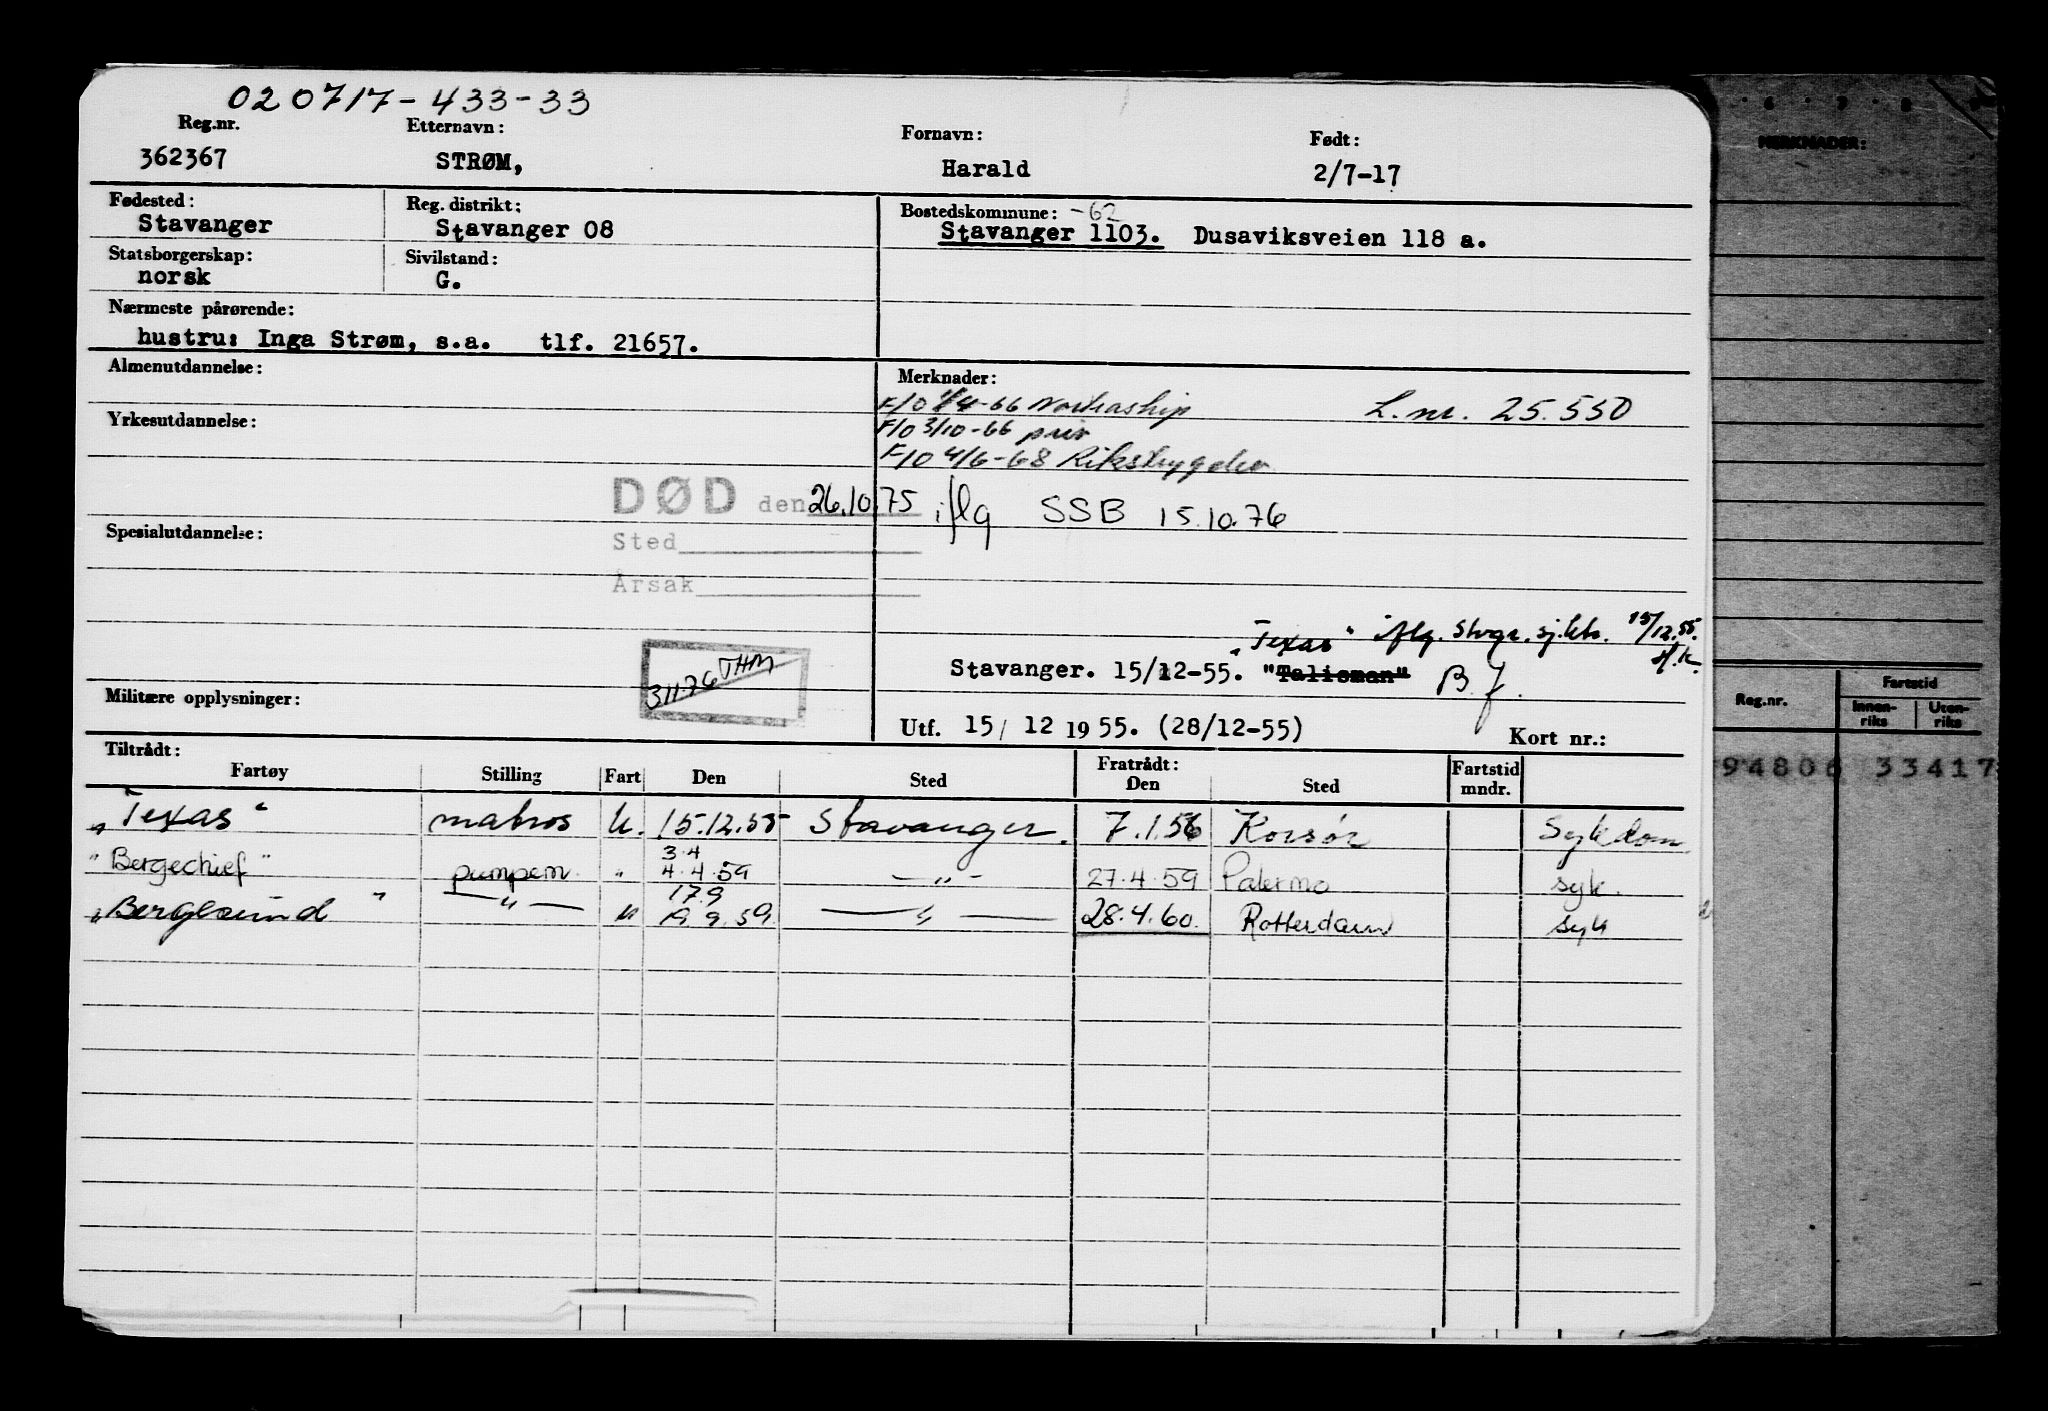 020717-433-33
Reg.nr. Etternavn: Fornavn: Født:
362367 STRØM, Harald 2/7-17
Fødested: Reg. distrikt: Bostedskommune: -62
Stavanger Stavanger 08 Stavanger 1103. Dusaviksveien 118 a.
Statsborgerskap: Sivilstand:
norsk G.
Nærmeste pårørende:
hustru: Inga Strøm, s.a. tlf. 21657.
Almenutdannelse: Merknader:
F/O 1/4-66 Nortraship L.nr. 25.550
Yrkesutdannelse: F/O 3/10-66 priv
F/O 4/6-68 Rikstrygden
DØD den 26.10.75 iflg SSB 15.10.76
Spesialutdannelse: Sted
Årsak
"Texas" iflg. Stvgr. sj.ktr. 15/12.55.
H.K.
31176 THM
Stavanger. 15/12-55. "Talisman" B.J.
Militære opplysninger:
Utf. 15/ 12 1955. (28/12-55) Kort nr.:
Tiltrådt: Fratrådt:
Fartøy Stilling Fart Den Sted Den Sted Fartstid mndr.
"Texas" matros U. 15.12.55 Stavanger. 7.1.56 Korsør Sykdom
3.4
"Bergechief" pumpem. " 4.4.59 — " — 27.4.59 Palermo syk.
17.9
"Berglesund" — " — " 19.9.59. — " — 28.4.60. Rotterdam syk
6 7 8
MERKNADER:
Reg.nr. Fartstid
Innen-riks Uten-riks
94806 33417